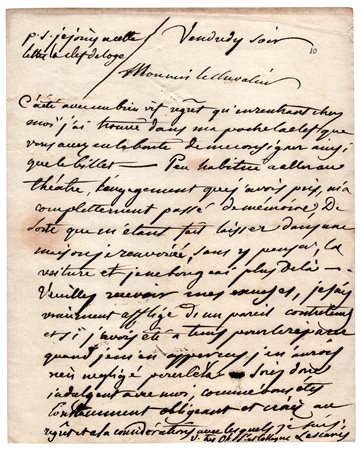 p.s. je joins a cette
lettre la clef de loge
Vendredy soir
10
Monsieur le chevalier
C'est avec un bien vif regret qu'en rentrant chez
moi j'ai trouvé dans ma poche la clef que
vous avez eu la bonté de me consigner ainsi
que le billet — Peu habitué a aller au
théatre, l'engagement que j'avois pris, m'a
complettement passé de mémoire De
sorte que m'etant fait laisser dans une
maison je renvoié, sans y penser, la
voiture et je ne bougeai plus de là —
Veuillez recevoir mes excuses, je suis
vraiment affligé d'un pareil contretems
et si j'avois été a tems pour le réparer
quand je m'en apperçus je n'aurois
rien négligé pour cela — Soiez donc
indulgent avec moi, comme vous etes
constamment obligeant et croiez au
regret et a la considération avec lesquels je suis
V. tres Ob. S. et collegue